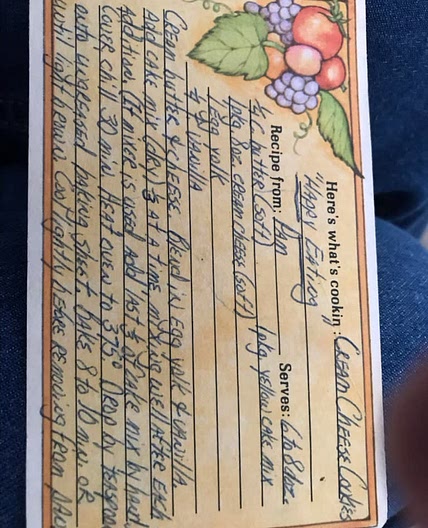 Here's what's cookin': Cream Cheese Cookies
"Happy Eating"
Recipe from: Pam Serves: 6 to 8 doz
1 pkg yellow cake mix
1 pkg 8oz cream cheese (soft)
1 Egg yolk
Vanilla
Cream butter & cheese. Blend in Egg yolk & Vanilla
Add cake mix (dry) ⅓ at a time, mixing well after each
addition (If mixer is used add last ⅓ of cake mix by hand)
Cover, chill 30 min. Heat oven to 375° Drop by teaspoon
onto ungreased baking sheet. Bake 8 to 10 min or
until light brown. Cool slightly before removing from pan